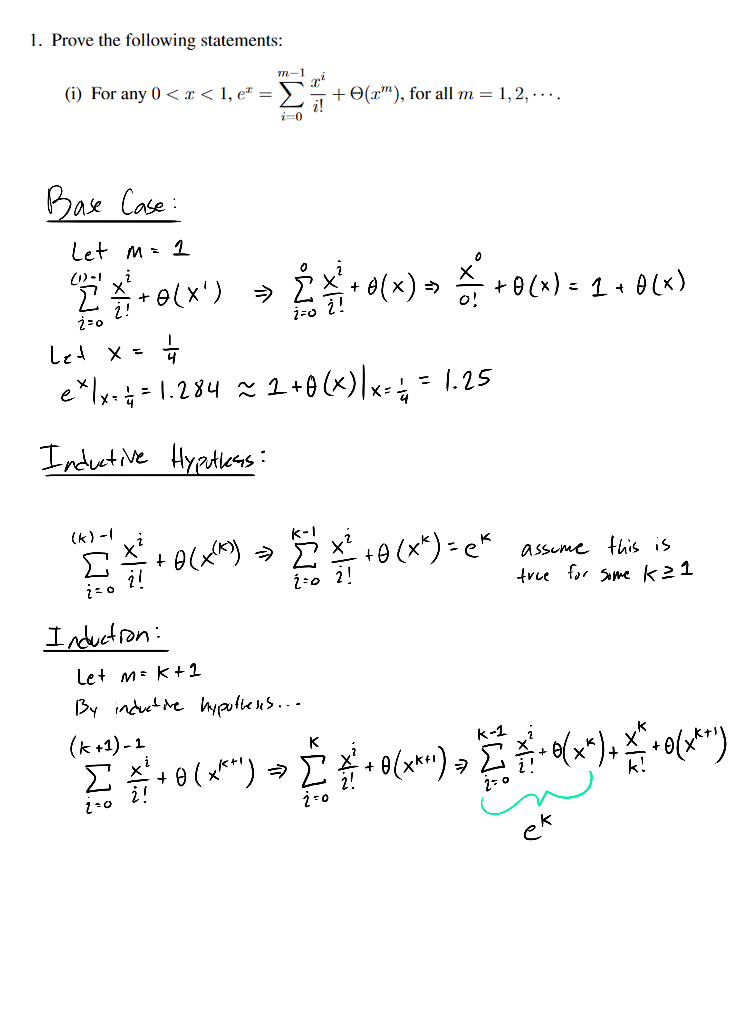 1. Prove the following statements:
(i) For any 0 < x < 1, e^x = \sum_{i=0}^{m-1} \frac{x^i}{i!} + Θ(x^m), for all m = 1, 2, ⋯.
Base Case:
Let m = 1
\sum_{i=0}^{(1)-1} \frac{x^i}{i!} + θ(x^1) ⇒ \sum_{i=0}^{0} \frac{x^i}{i!} + θ(x) ⇒ \frac{x^0}{0!} + θ(x) = 1 + θ(x)
Let x = \frac{1}{4}
e^x|_{x=\frac{1}{4}} = 1.284 ≈ 1 + θ(x)|_{x=\frac{1}{4}} = 1.25
Inductive Hypothesis:
\sum_{i=0}^{(k)-1} \frac{x^i}{i!} + θ(x^{(k)}) ⇒ \sum_{i=0}^{k-1} \frac{x^i}{i!} + θ(x^k) = e^k assume this is
true for some k ≥ 1
Induction:
Let m = k+1
By inductive hypothesis...
\sum_{i=0}^{(k+1)-1} \frac{x^i}{i!} + θ(x^{k+1}) ⇒ \sum_{i=0}^{k} \frac{x^i}{i!} + θ(x^{k+1}) ⇒ \sum_{i=0}^{k-1} \frac{x^i}{i!} + θ(x^k) + \frac{x^k}{k!} + θ(x^{k+1})
e^k